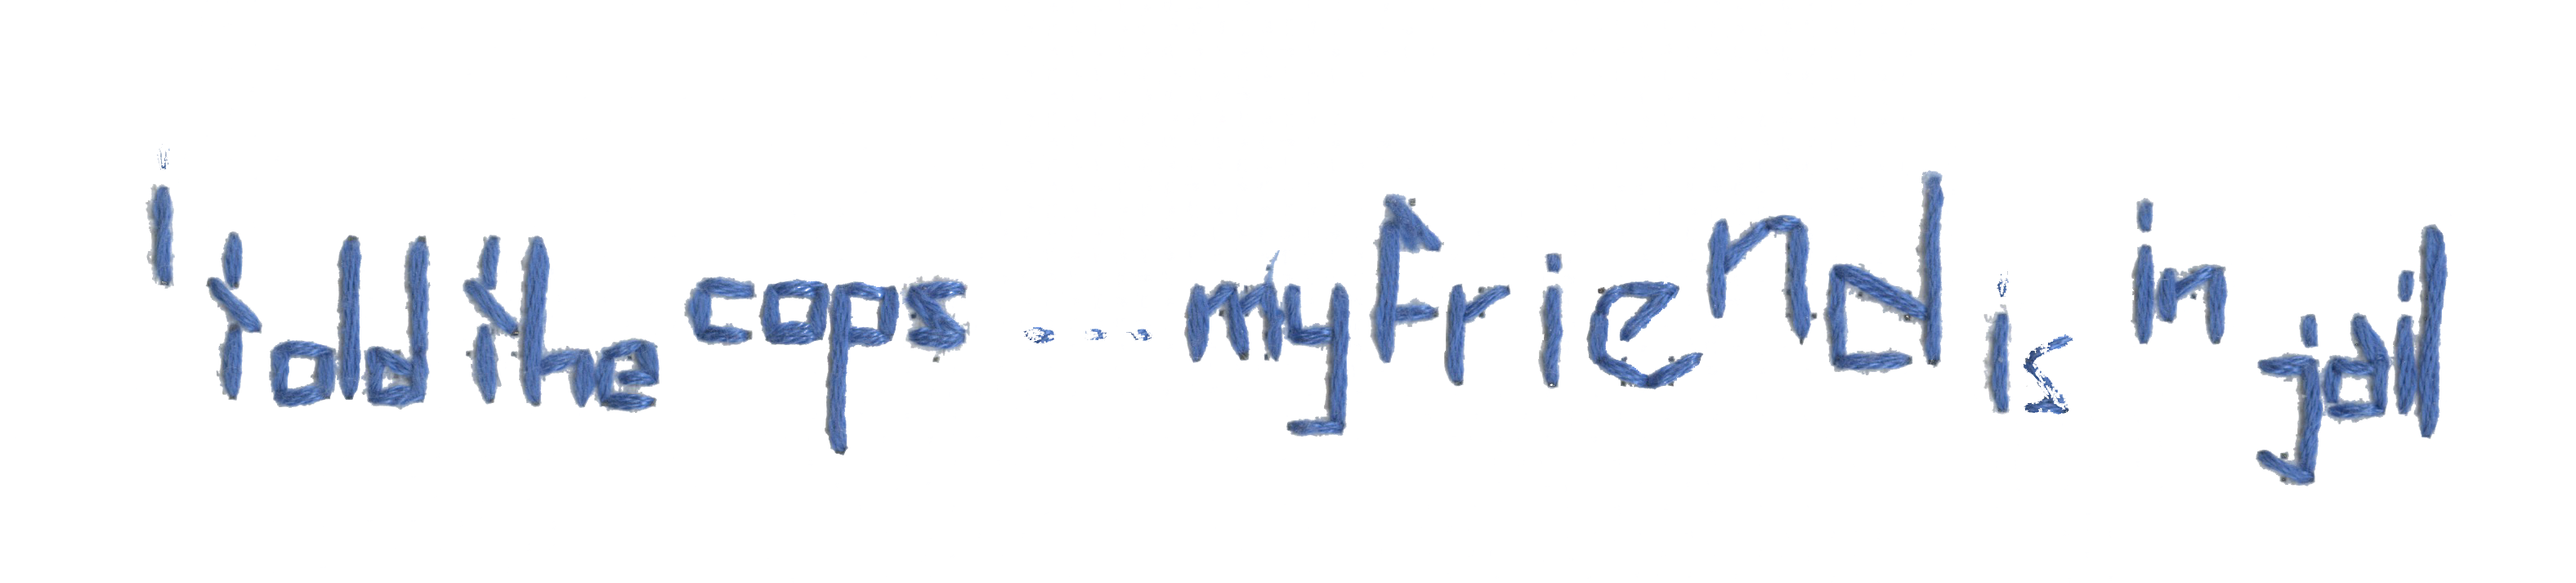 i told the cops ... my friend is in jail